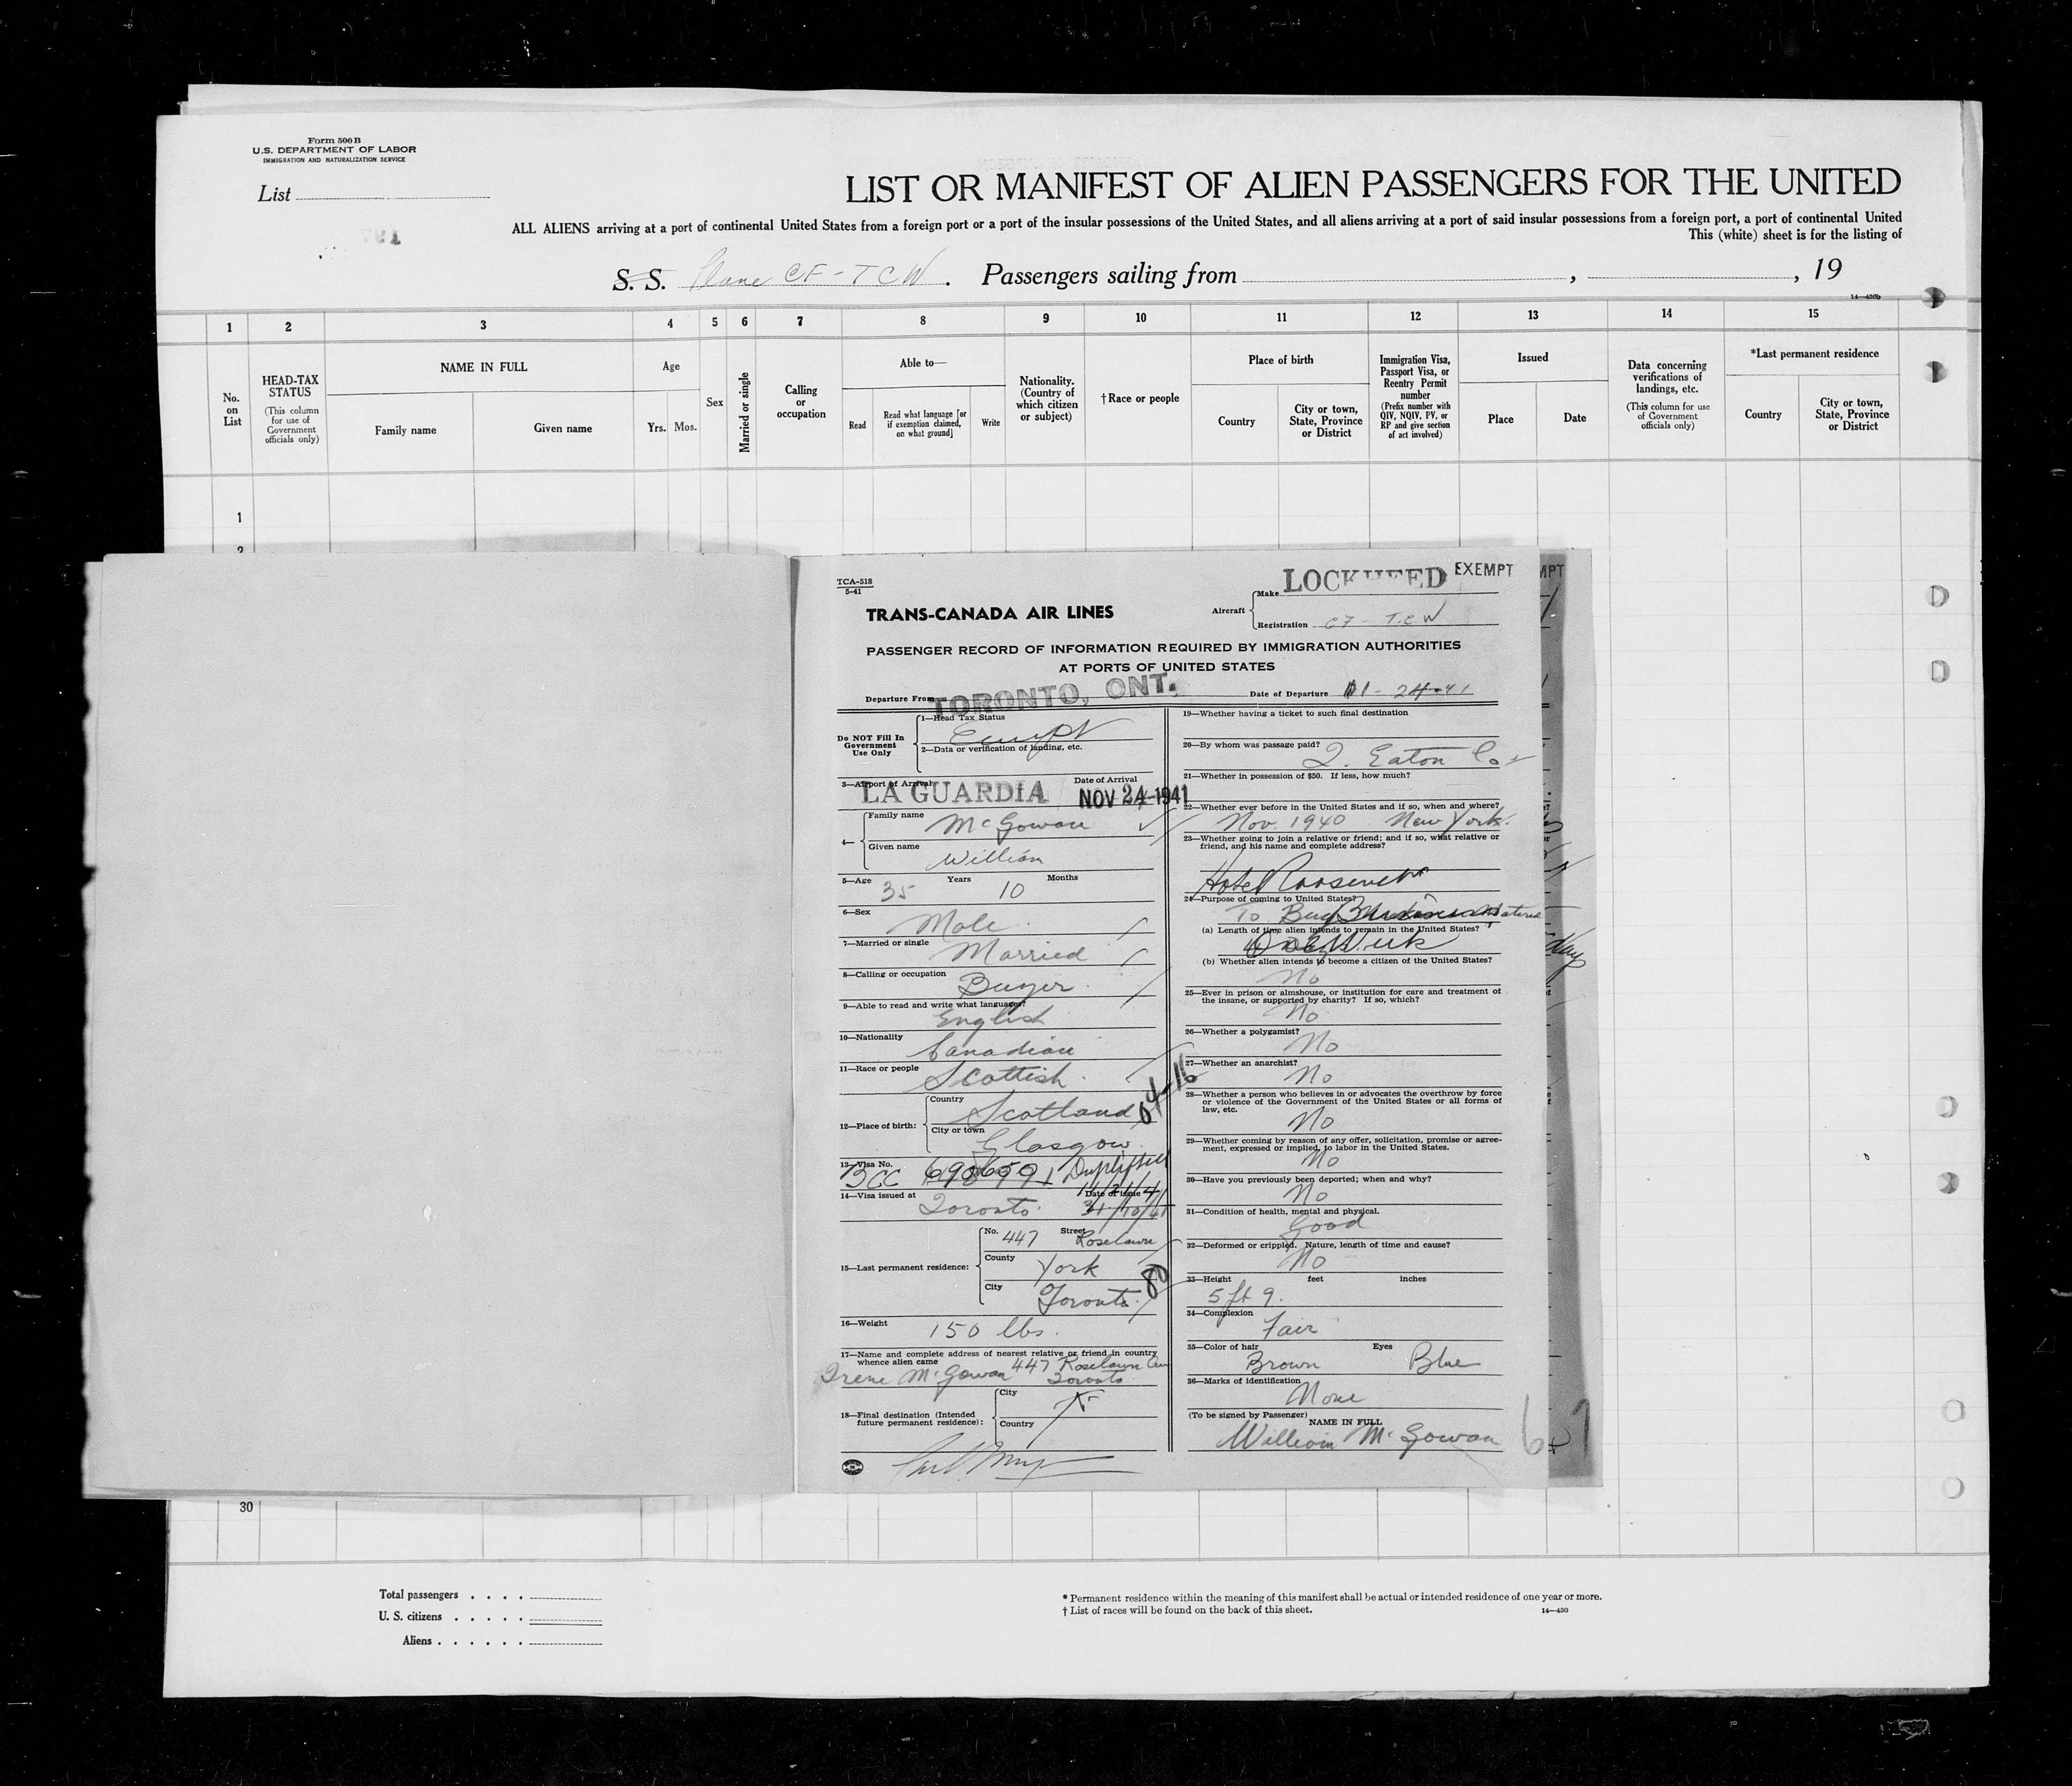 Form 500 B
U.S. DEPARTMENT OF LABOR
IMMIGRATION AND NATURALIZATION SERVICE
List
LIST OR MANIFEST OF ALIEN PASSENGERS FOR THE UNITED
ALL ALIENS arriving at a port of continental United States from a foreign port or a port of the insular possessions of the United States, and all aliens arriving at a port of said insular possessions from a foreign port, a port of continental United
This (white) sheet is for the listing of
S. S. Plane CF-TCW. Passengers sailing from , , 19
14—430b
1 2 3 4 5 6 7 8 9 10 11 12 13 14 15
No. on List
HEAD-TAX STATUS
(This column for use of Government officials only)
NAME IN FULL
Family name
Given name
Age
Yrs. Mos.
Sex
Married or single
Calling or occupation
Able to—
Read
Read what language [or if exemption claimed, on what ground]
Write
Nationality. (Country of which citizen or subject)
†Race or people
Place of birth
Country
City or town, State, Province or District
Immigration Visa, Passport Visa, or Reentry Permit number
(Prefix number with QIV, NQIV, PV, or RP and give section of act involved)
Issued
Place
Date
Data concerning verifications of landings, etc.
(This column for use of Government officials only)
*Last permanent residence
Country
City or town, State, Province or District
1
2
TCA-518
5-41
TRANS-CANADA AIR LINES
Aircraft
Make LOCKHEED
EXEMPT
Registration CF-TCW
PASSENGER RECORD OF INFORMATION REQUIRED BY IMMIGRATION AUTHORITIES
AT PORTS OF UNITED STATES
Departure From TORONTO, ONT.
Date of Departure 11-24-41
Do NOT Fill In Government Use Only
1—Head Tax Status
Exempt
2—Data or verification of landing, etc.
3—Airport of Arrival
Date of Arrival
LA GUARDIA NOV 24 1941
4—
Family name
McGowan
Given name
William
5—Age 35 Years 10 Months
6—Sex
Male
7—Married or single
Married
8—Calling or occupation
Buyer
9—Able to read and write what languages?
English
10—Nationality
Canadian
11—Race or people
Scottish
12—Place of birth:
Country
Scotland
City or town
Glasgow
13—Visa No.
BCC
14—Visa issued at
Date of issue
Toronto
15—Last permanent residence:
No. 447 Street Roselawn
County York
City Toronto
80
16—Weight
150 lbs.
17—Name and complete address of nearest relative or friend in country
whence alien came
Irene McGowan 447 Roselawn Ave
Toronto
18—Final destination (Intended future permanent residence):
City
Country
19—Whether having a ticket to such final destination
20—By whom was passage paid?
T. Eaton Co
21—Whether in possession of $50. If less, how much?
22—Whether ever before in the United States and if so, when and where?
Nov. 1940 New York.
23—Whether going to join a relative or friend; and if so, what relative or
friend, and his name and complete address?
Hotel Roosevelt
24—Purpose of coming to United States?
To Buy
(a) Length of time alien intends to remain in the United States?
One Week
(b) Whether alien intends to become a citizen of the United States?
No
25—Ever in prison or almshouse, or institution for care and treatment of
the insane, or supported by charity? If so, which?
No
26—Whether a polygamist?
No
27—Whether an anarchist?
No
28—Whether a person who believes in or advocates the overthrow by force
or violence of the Government of the United States or all forms of
law, etc.
No
29—Whether coming by reason of any offer, solicitation, promise or agree-
ment, expressed or implied, to labor in the United States.
No
30—Have you previously been deported; when and why?
No
31—Condition of health, mental and physical.
Good
32—Deformed or crippled. Nature, length of time and cause?
No
33—Height feet inches
5 ft 9.
34—Complexion
Fair
35—Color of hair Eyes
Brown Blue
36—Marks of identification
None
(To be signed by Passenger)
NAME IN FULL
William McGowan
6
30
Total passengers
U. S. citizens
Aliens
* Permanent residence within the meaning of this manifest shall be actual or intended residence of one year or more.
† List of races will be found on the back of this sheet.
14—430